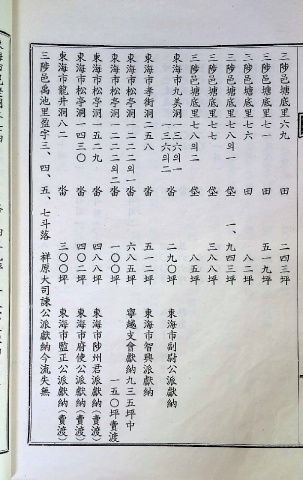 三陟邑塘底里六九 田 二四三坪
三陟邑塘底里七一 田 五一九坪
三陟邑塘底里七六 田 八二坪
三陟邑塘底里七八의一 垈 一、九四三坪
三陟邑塘底里七七 垈 三八八坪
三陟邑塘底里七八의二 垈 八五坪
東海市九美洞一三六의一
一三六의二 畓 二九〇坪 東海市副尉公派獻納
東海市孝街洞二五八 畓 五一二坪 東海市智興派獻納
東海市松亭洞一二二二의一 畓 六八五坪 寧越支會獻納九三五坪中
東海市松亭洞一二二二의二 畓 一〇〇坪 一五〇坪賣渡
東海市松亭洞一五二九 畓 四八八坪 東海市陟州君派獻納(賣渡)
東海市松亭洞一四三〇 畓 四〇二坪 東海市府使公派獻納(賣渡)
東海市龍井洞八二 畓 三〇〇坪 東海市監正公派獻納(賣渡)
三陟邑禹池里盈字三、四、五、七斗落 祥原大司諫公派獻納今流失無